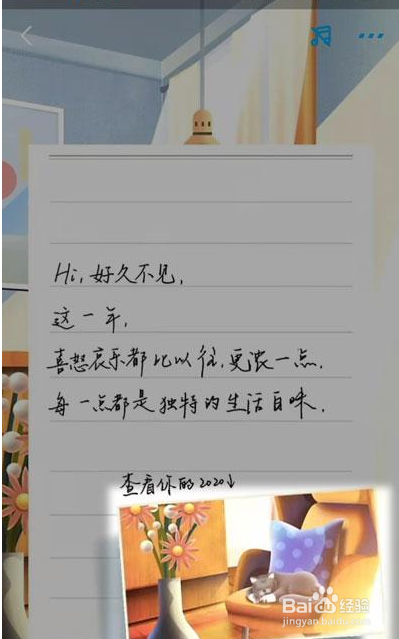 Hi,好久不见,
这一年,
喜怒哀乐都比以往,更浓一点.
每一点都是独特的生活百味.
查看你的2020↓
Baidu经验
jingyan.baidu.com